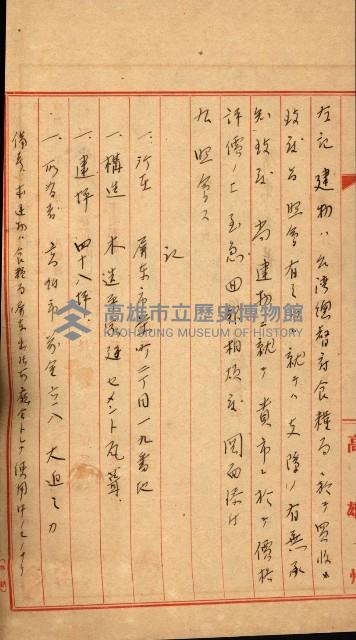 左記建物ハ台湾總督府食糧局ニ於テ買收
致度旨照會有之候ニ就テハ支障ノ有無承
知致度尚建物ニ就テ貴市ニ於テ價格
評價ノ上至急回報相煩度圖面添付
此照會ス
記
一、所在 屏東市 町二丁目一九番地
一、構造 木造平家建セメント瓦葺
一、建坪 四十八坪
一、所有者 高雄市 大迫
備考 本建物ハ食糧局屏東出張所廳舍トシテ使用中ノモノナリ
高雄市立歷史博物館
KAOHSIUNG MUSEUM OF HISTORY
高雄州